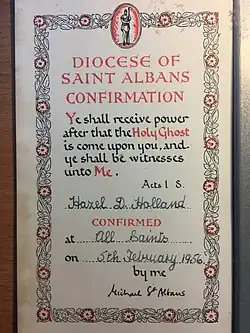 DIOCESE OF
SAINT ALBANS
CONFIRMATION
Ye shall receive power
after that the Holy Ghost
is come upon you, and
ye shall be witnesses
unto Me.
Acts 1 8.
Hazel D. Holland
CONFIRMED
at All Saints
on 5th February 1956
by me
Michael St Albans